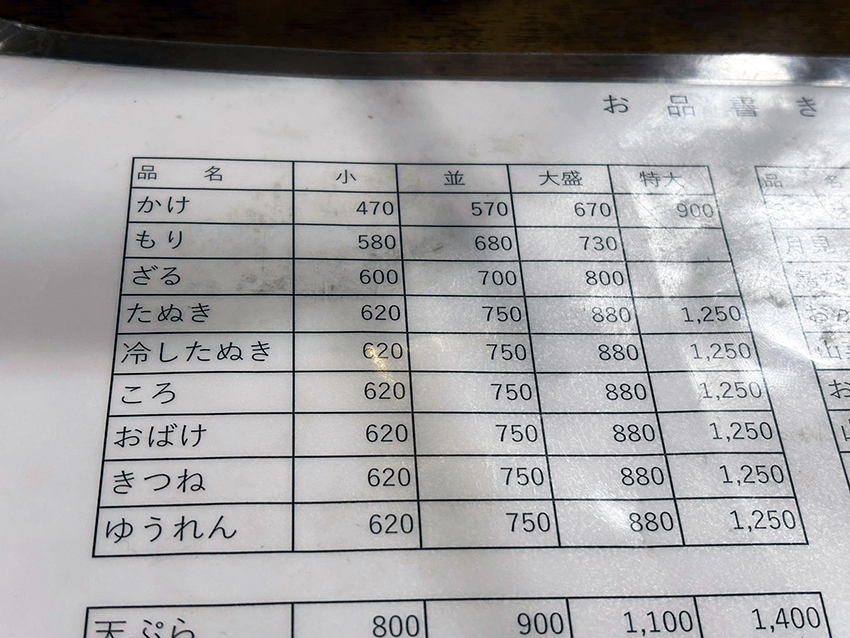 お品書き
品 名 小 並 大盛 特大
かけ 470 570 670 900
もり 580 680 730
ざる 600 700 800
たぬき 620 750 880 1,250
冷したぬき 620 750 880 1,250
ころ 620 750 880 1,250
おばけ 620 750 880 1,250
きつね 620 750 880 1,250
ゆうれん 620 750 880 1,250
天ぷら 800 900 1,100 1,400
品 名
月見